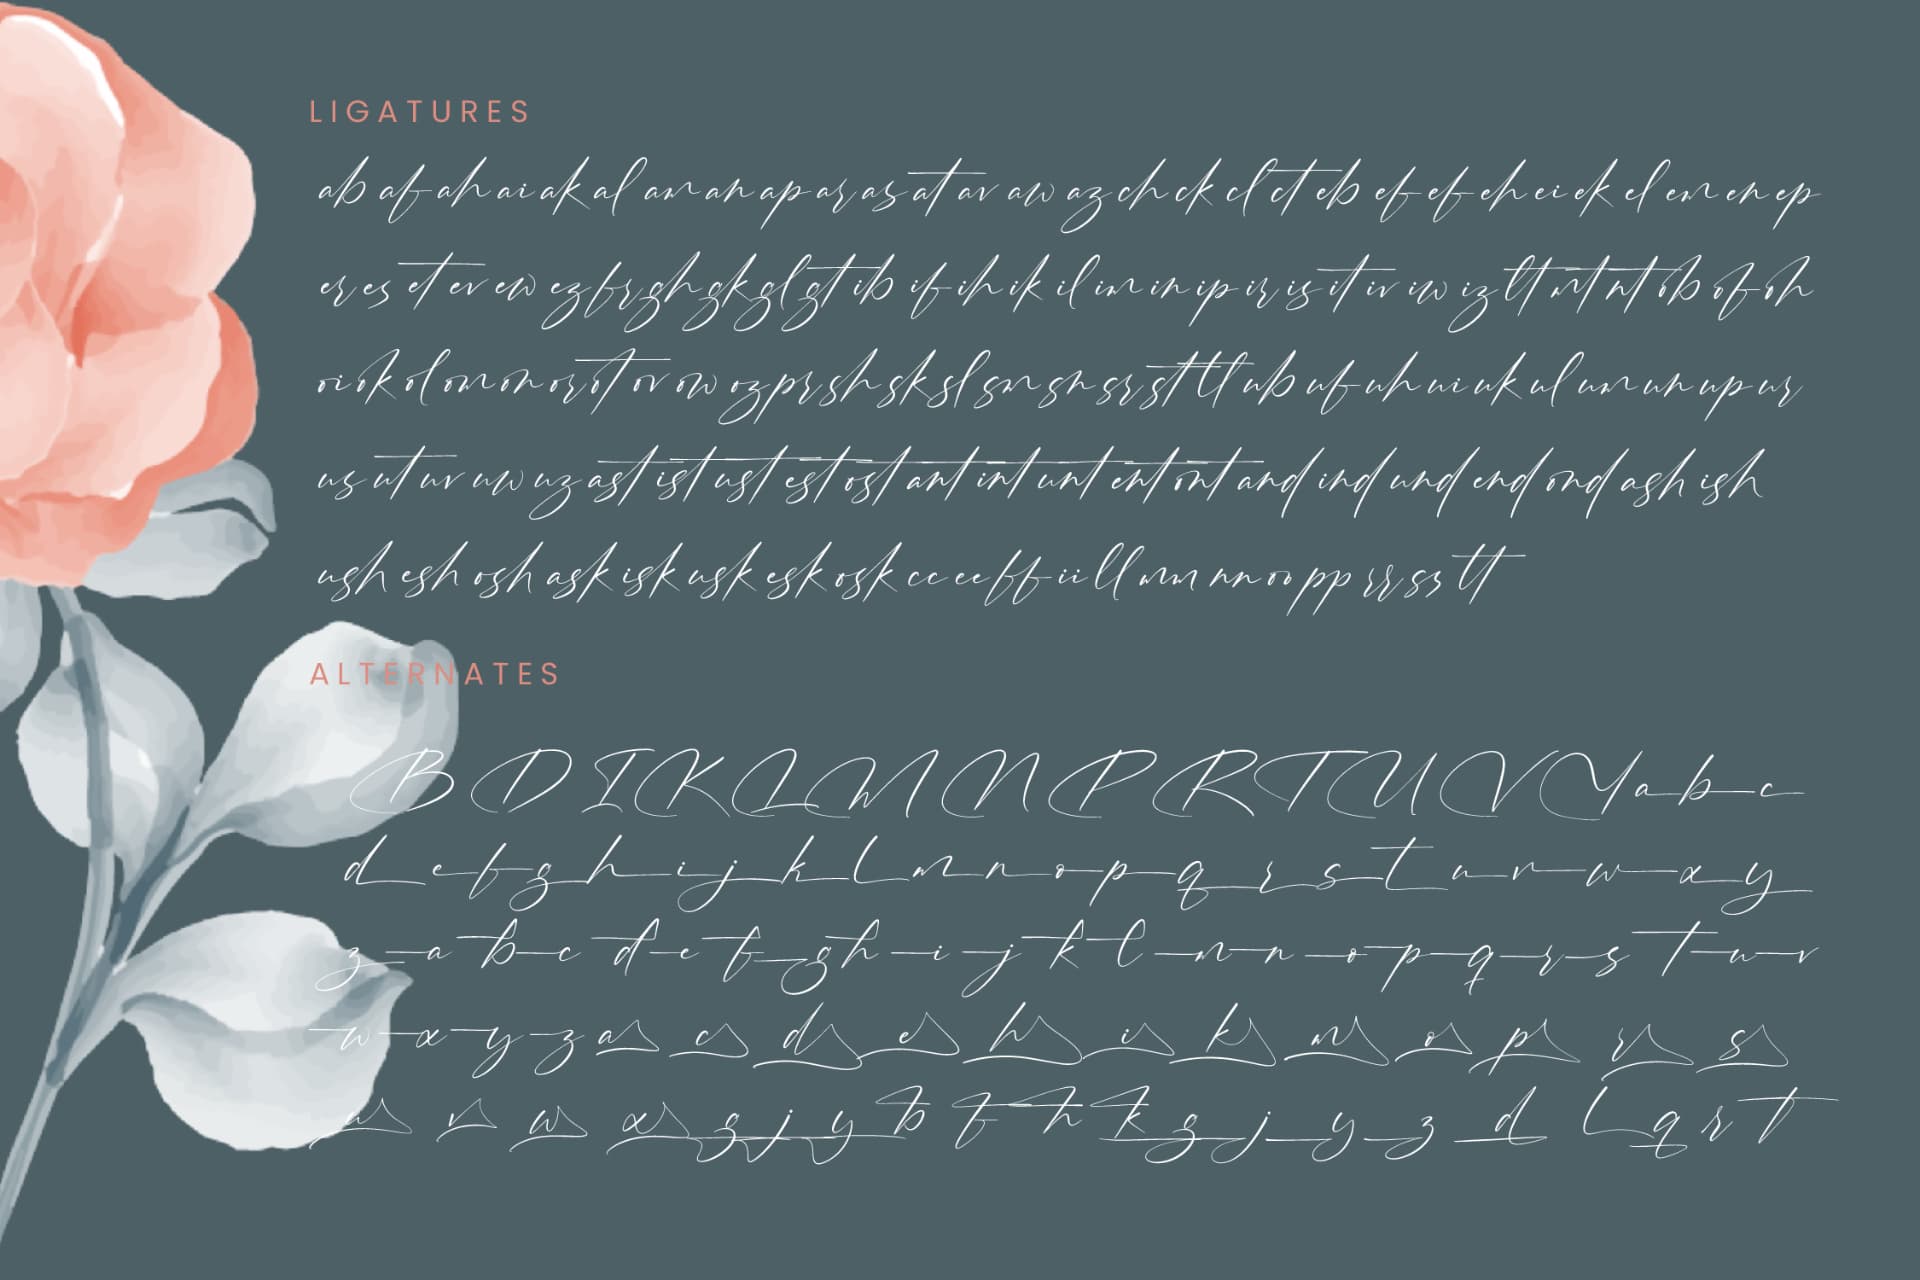 LIGATURES
ab af ah ai ak al am an ap ar as at av aw az ch ck cl ct eb ef ef eh ei ek el em en ep
er es et ev ew ez fr gh gk gl gt ib if ih ik il im in ip ir is it iv iw iz lt mt nt ob of oh
oi ok ol om on or ot ov ow oz pr sh sk sl sm sn sr st tl ub uf uh ui uk ul um un up ur
us ut uv uw uz ast ist ust est ost ant int unt ent ont and ind und end ond ash ish
ush esh osh ask isk usk esk osk cc ee ff ii ll mm nn oo pp rr ss tt
ALTERNATES
B D I K L M N P R T U V Y a b c
d e f g h i j k l m n o p q r s t u v w x y
z a b c d e f g h i j k l m n o p q r s t u v
w x y z a c d e h i k m o p r s
u v w x g j y b f h k g j y z d l q r t